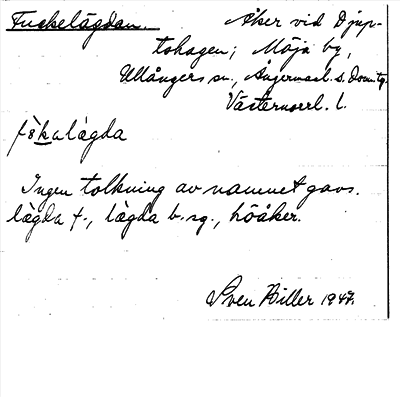 Fuckelägdan. Åker vid Djup-
tohagen; Möja by,
Ullångers sn., Ångermanl. s. Domstg.
Västernorrl. l.
lägda
Ingen tolkning av namnet gavs.
lägda f., lägda b. sg., höåker.
Sven Hiller 1947.